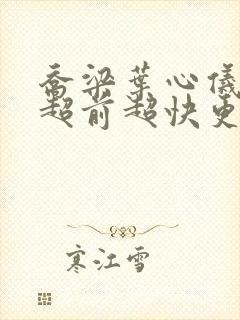 乔梁叶心仪
超前超快更
寒江雪